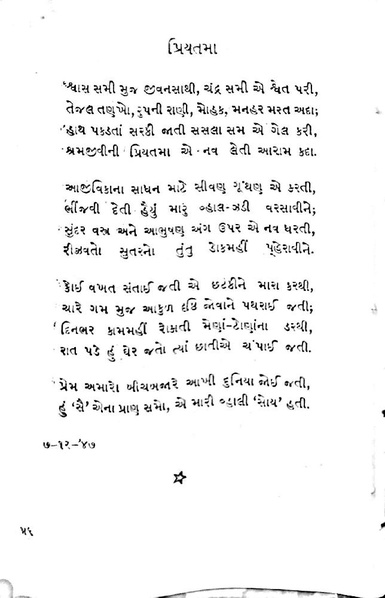 પ્રિયતમા
શ્વાસ સમી મુજ જીવનસાથી, ચંદ્ર સમી એ શ્વેત પરી,
તેજલ તણખો, રુપની રાણી, મોહક, મનહર મસ્ત અદા;
હાથ પકડતાં સરકી જાતી સસલા સમ એ ગેલ કરી,
શ્રમજીવીની પ્રિયતમા એ નવ લેતી આરામ કદા.
આજીવિકાના સાધન માટે સીવણ ગૂંથણ એ કરતી,
ભીંજવી દેતી હૈયું મારું વ્હાલ-ઝડી વરસાવીને;
સુંદર વસ્ત્ર અને આભુષણ અંગ ઉપર એ નવ ધરતી,
રીઝવતો સુતરનો તંતુ ડોકમહીં પ્હેરાવીને.
કોઈ વખત સંતાઈ જતી એ છટકીને મારા કરથી,
ચારે ગમ મુજ આકુળ દ્રષ્ટિ જોવાને પથરાઈ જતી;
દિનભર કામમહીં રોકાતી મેણાં-ટોણાંના ડરથી,
રાત પડે હું ઘેર જતો ત્યાં છાતીએ ચંપાઈ જતી.
પ્રેમ અમારો બીચબજારે આખી દુનિયા જોઈ જતી,
હું ‘સૈ’ એના પ્રાણ સમો, એ મારી વ્હાલી ‘સોય’ હતી.
૭-૧૨-’૪૭
૫૬